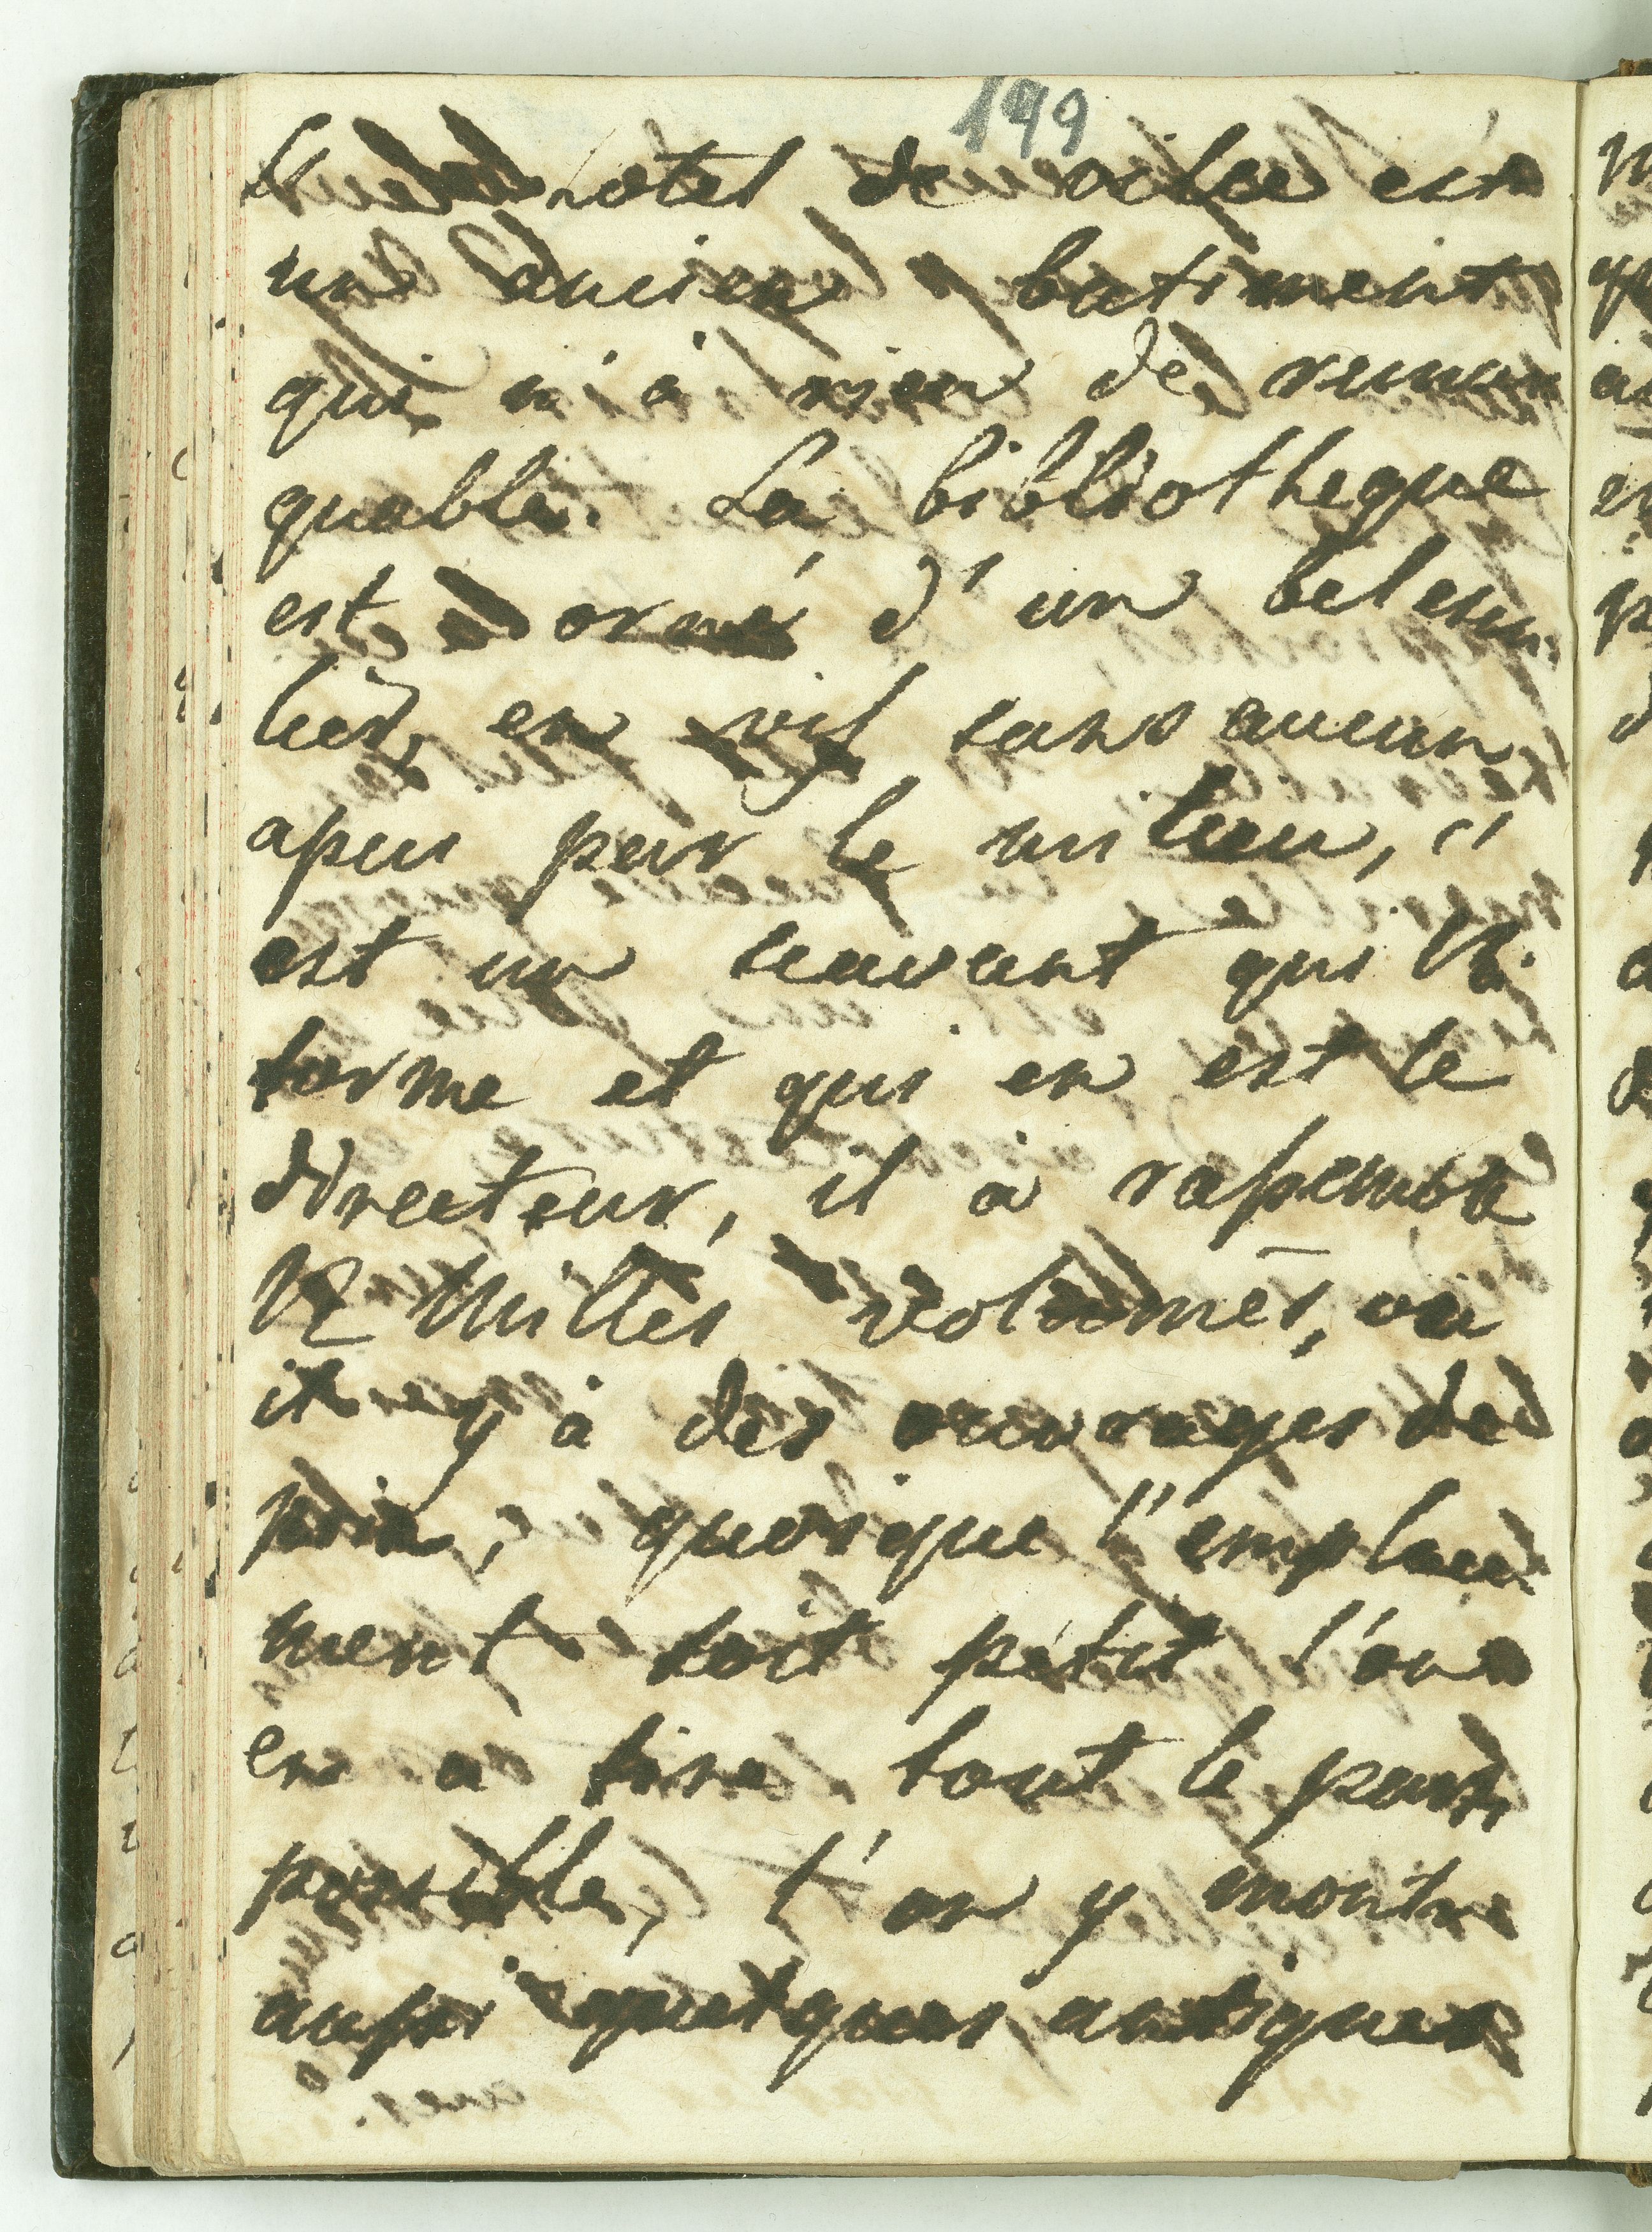 199
L hotel de ville est
un ancien batiment
qui n'à rien de remar
quable. La bibliotheque
est orné d'un bel escu
lier, en vis sans aucun
apui par le milieu, c'
est un savant qui l'à
forme et qui en est le
directeur, il à rassemblé
12 Milles volumes, ou
it y à des ouvrages de
prix, quoique l'emplace
ment soit petit l'on
en a tiré tout le parti
possible, l'on y montre
aussi quelques antiques